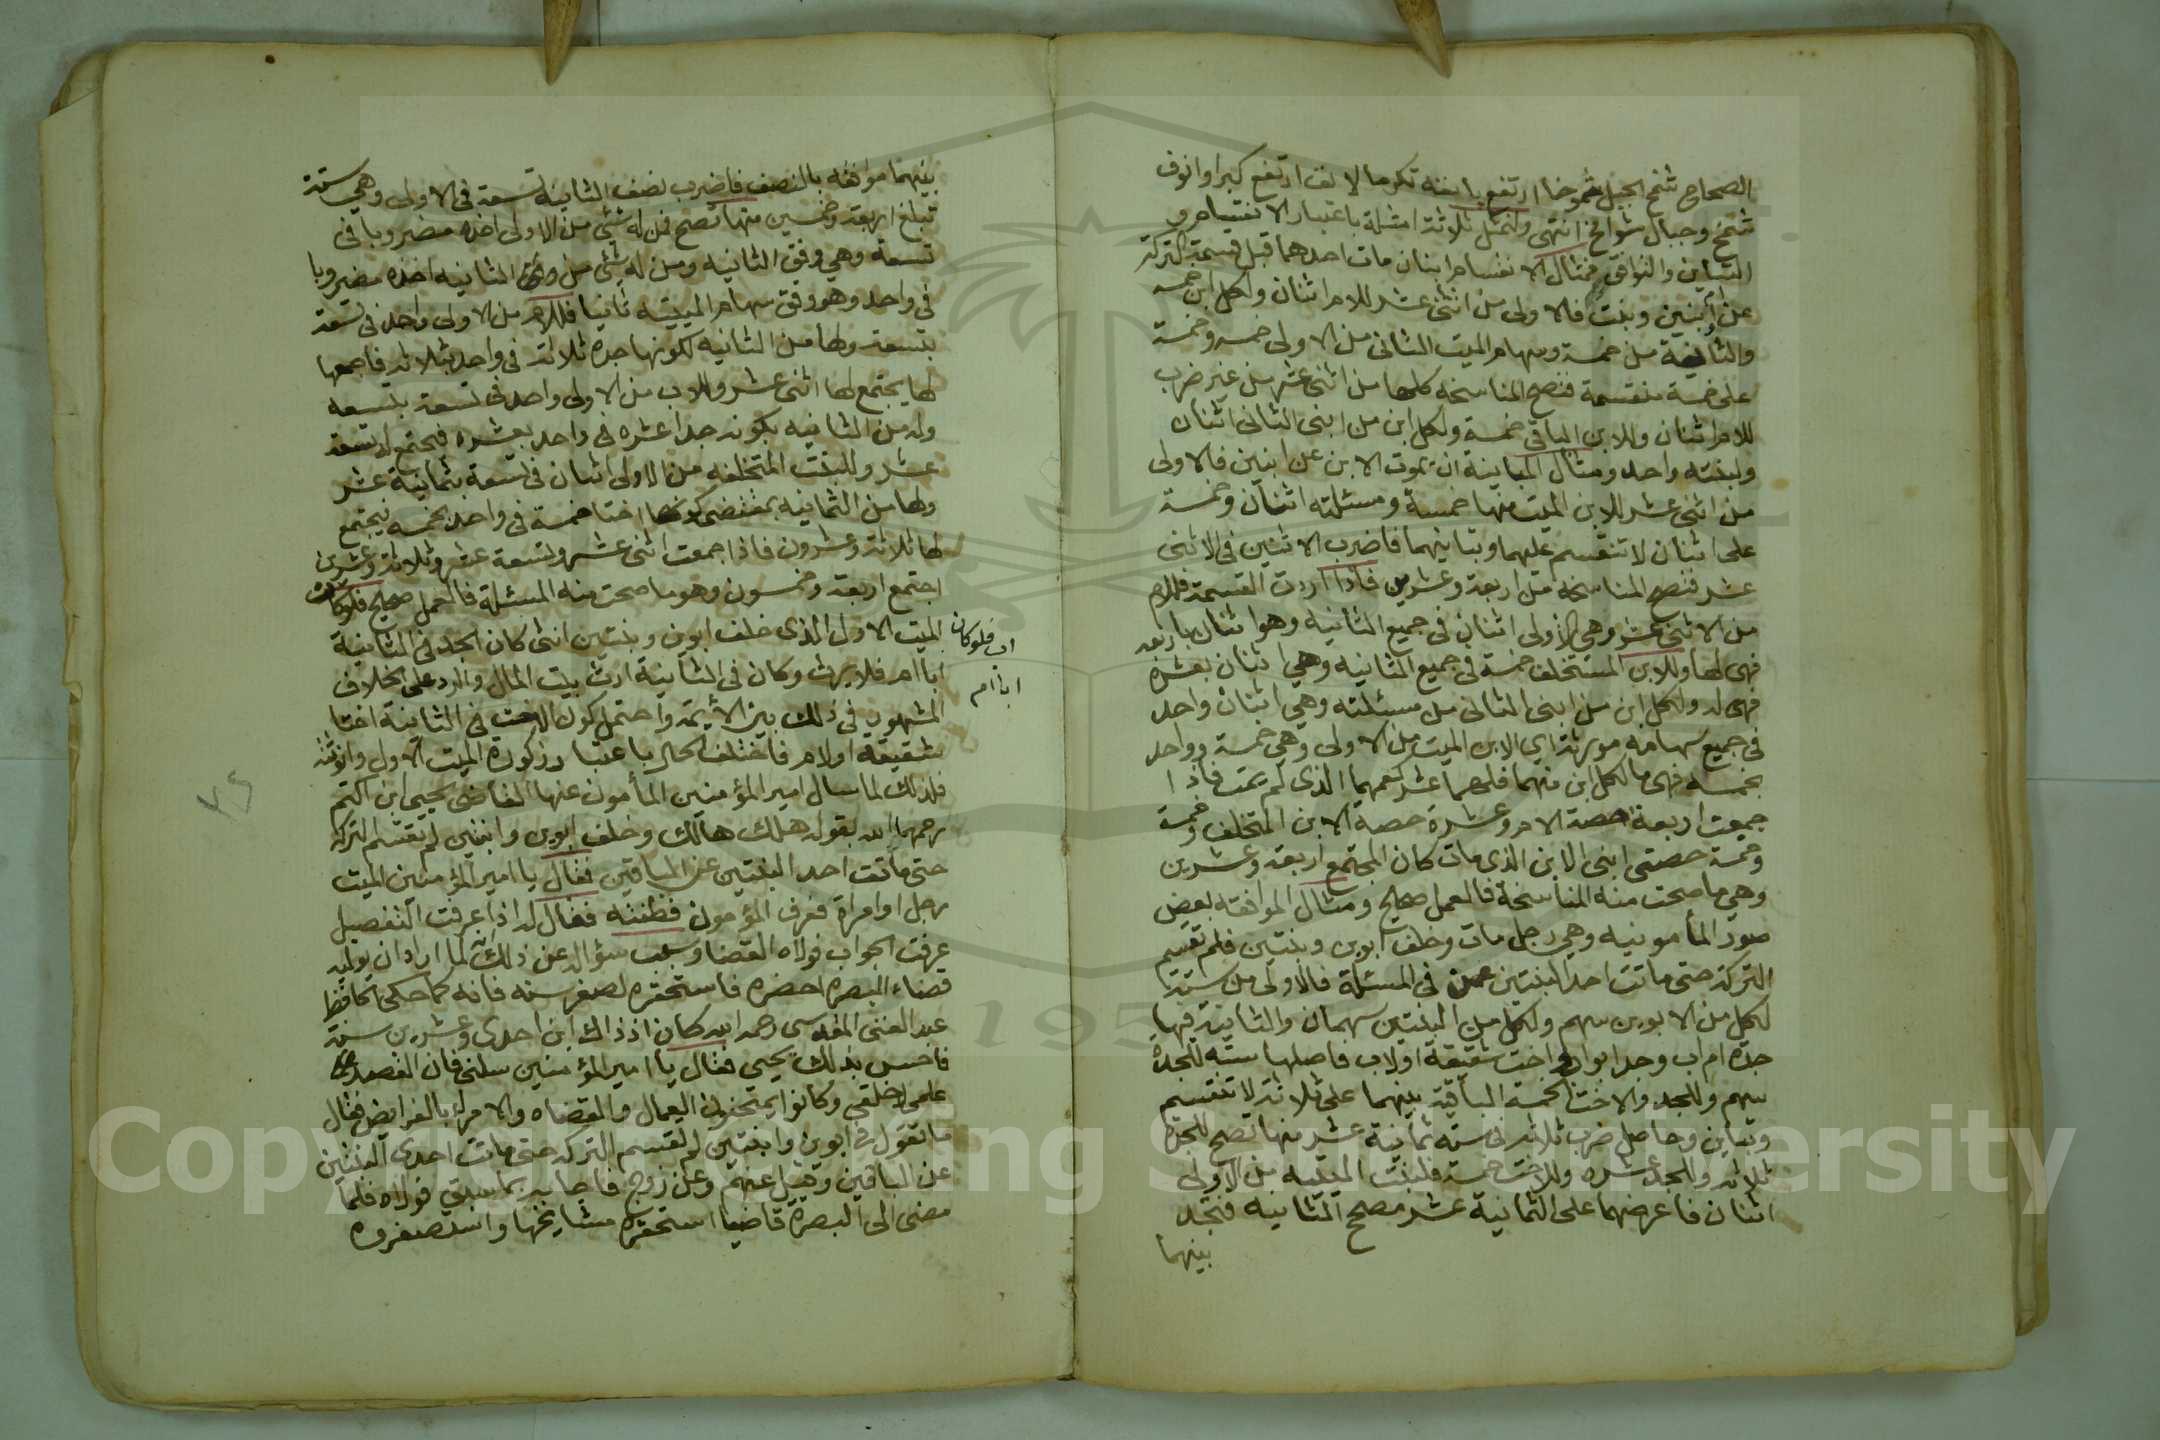 الصحاح شمخ الجبل شموخا ارتفع بانفه تكرما لانف ارتفع كبرا وانوف
شمخ وجبال شوامخ انتهى ولنمثل ثلاثة امثلة باعتبار الانقسام و
التباين والتوافق فمثال الانقسام ابنان مات احدهما قبل قسمة التركة
عن ابنين وبنت فالاولى من اثنى عشر للام اثنان ولكل ابن خمسه
والثانية من خمسة وسهام الميت الثانى من الاولى خمسه وخمسة
على خمسة منقسمة فتصح المناسخه كلها من اثنى عشر من غير ضرب
للام اثنان وللابن الباقى خمسة ولكل ابن من ابنى الثانى اثنان
ولبنته واحد ومثال المباينة ان يموت الابن عن ابنين فالاولى
من اثنى عشر للابن الميت منها خمسة ومسئلته اثنان وخمسة
على اثنان لا تنقسم عليهما وتباينهما فاضرب الاثنين فى الاثنى
عشر فتصح المناسخه من اربعة وعشرين فاذا اردت القسمة فللام
من الاثنى عشر وهى الاولى اثنان فى جميع الثانيه وهو اثنان باربعه
فهى لها وللابن المستخلف خمسة فى جميع الثانيه وهى اثنان بعشرة
فهى له ولكل ابن من ابنى الثانى من مسئلته وهى اثنان واحد
فى جميع سهام مورثه اي الابن الميت من الاولى وهى خمسة وواحد
بخمسه فهى ما لكل ابن منهما فلهما عشر كعمهما الذى لم يمت فاذا
جمعت اربعة حصة الام وعشرة حصة الابن المتخلف وخمسة
وخمسة حصتى ابنى الابن الذى مات كان المجتمع اربعة وعشرين
وهى ما صحت منه المناسخة فالعمل صحيح ومثال الموافقه بعض
صور المأمونيه وهى رجل مات وخلف ابوين وبنتين فلم تقسم
التركة حتى ماتت احد البنتين عمن فى المسئلة فالاولى من ستة
لكل من الابوين سهم ولكل من البنتين سهمان والثانية فيها
جدة ام اب وجد ابواب واخت شقيقة اولاب فاصلها سته للجده
سهم وللجد والاخت الخمسة الباقية بينهما على ثلاثة لا تنقسم
وتباين وحاصل ضرب ثلاثه فى سته ثمانية عشر منها تصح للجدة
ثلاثه وللجد عشره وللاخت خمسة فللبنت الميته من الاولى
اثنان فاعرضهما على الثمانية عشر مصحح الثانيه فتجد
بينهما
بينهما موافقه بالنصف فاضرب نصف الثانيه تسعة فى الاولى وهى ستة
تبلغ اربعة وخمسين منها تصح فمن له شئ من الاولى اخذه مضروبا فى
تسعة وهى وفق الثانيه ومن له شئ من الثانيه اخذه مضروبا
فى واحد وهو وفق سهام الميته ثانيا فللام من الاولى واحد فى تسعة
بتسعة ولها من الثانيه لكونها جدة ثلاثة فى واحد بثلاثه فاجمعها
لها يجتمع لها اثنى عشر وللاب من الاولى واحد فى تسعة بتسعه
وله من الثانيه بكونه جدا عشره فى واحد بعشره فيجتمع له تسعة
عشر وللبنت المتخلفه من الاولى اثنان فى تسعة بثمانية عشر
ولها من الثمانيه بمقتضى كونها اختا خمسة فى واحد بخمسه فيجتمع
لها ثلاثة وعشرون فاذا جمعت اثنى عشر وتسعة عشر وثلاثة وعشرين
اجتمع اربعة وخمسون وهو ما صحت منه المسئلة فالعمل صحيح فلوكان
الميت الاول الذى خلف ابوين وبنتين انثى كان الجد فى الثانية
ابا ام فلا يرث وكان فى الثانية ارث بيت المال والرد على الخلاف
المشهور فى ذلك بين الأيمة واحتمل كون الاخت فى الثانية اختا
شقيقة اولام فاختلف الحال باعتبار ذكورة الميت الاول وانوثته
فلذلك لما سال امير المؤمنين المأمون عنها القاضى يحيى ابن اكتم
رحمهما الله بقوله هلك هالك وخلف ابوين وابنتين لم يقتسم التركة
حتى ماتت احد البنتين عن الباقين فقال يا امير المؤمنين الميت
رجل او امراة فعرف المؤمون فطنته فقال له اذا عرفت التفصيل
عرفت الجواب فولاه القضا وسبب سؤاله عن ذلك انه لما اراد ان يوليه
قضاء البصره احضره فاستحقره لصغر سنه فانه كما حكى الحافظ
عبد الغنى المقدسى رحمه الله كان اذ ذاك ابن احدى وعشرين سنة
فاحس بذلك يحيى فقال يا امير المؤمنين سلنى فان القصد
علمى لا خلقى وكانوا يمتحنون العمال والقضاه والامراء بالفرايض فقال
ما تقول فى ابوين وابنتين لم تقسم التركه حتى ماتت احدى البنتين
عن الباقين وقيل عنهم وعن زوج فاجابه بما سبق فولاه فلما
مضى الى البصرة قاضيا استحقره مشايخها واستصغروه
اب فلوكان
ابا ام
٧٤
1957
Copyright © King Saud University